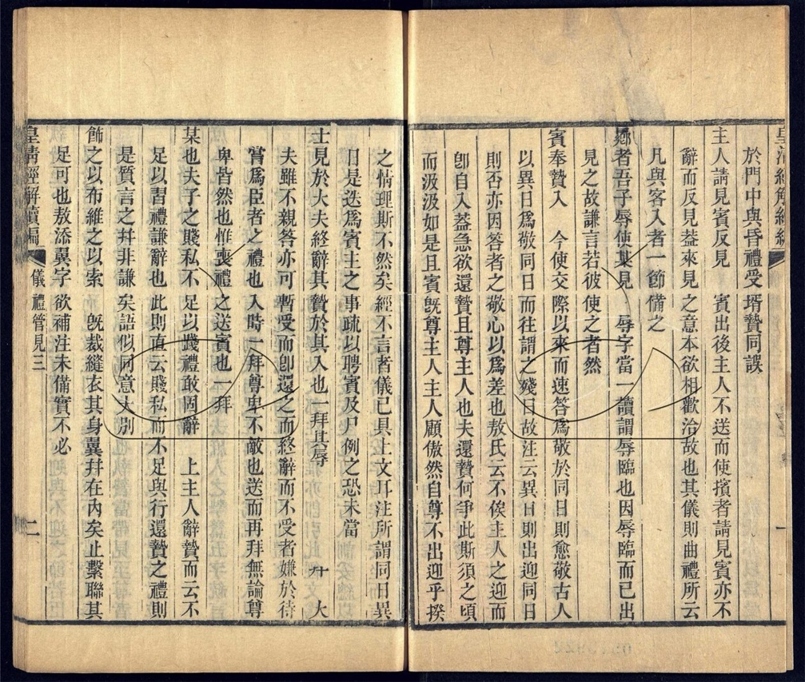 皇清經解續編
於門中與昏禮受壻贄同誤
主人請見賓反見　賓出後主人不送而使擯者請見賓亦不
辭而反見葢來見之意本欲相歡洽故也其儀則曲禮所云
凡與客入者一節備之
曏者吾子辱使某見　辱字當一讀謂辱臨也因辱臨而已出
見之故謙言若彼使之者然
賓奉贄入　今使交際以來而速答爲敬於同日則愈敬古人
以異日爲敬同日而往謂之殘日故注云異日則出迎同日
則否亦因答者之敬心以爲差也敖氏云不俟主人之迎而
卽自入葢急欲還贄且尊主人也夫還贄何爭此斯須之頃
而汲汲如是且賓旣尊主人主人顧傲然自尊不出迎乎揆
一
之情理斯不然矣經不言者儀已具上文耳注所謂同日異
日是迭爲賓主之事疏以聘賓及尸例之恐未當
士見於大夫終辭其贄於其入也一拜其辱　　大
夫雖不親答亦可暫受而卽還之而終辭而不受者嫌於待
嘗爲臣者之禮也入時一拜尊卑不敵也送而再拜無論尊
卑皆然也惟喪禮之送賓也一拜
某也夫子之賤私不足以踐禮敢固辭　上主人辭贄而云不
足以習禮謙辭也此則直云賤私而不足與行還贄之禮則
是質言之幷非謙矣語似同意大別
飾之以布維之以索　旣裁縫衣其身翼幷在內矣止繫聯其
足可也敖添翼字欲補注未備實不必
皇清經解續編
儀禮管見三
二